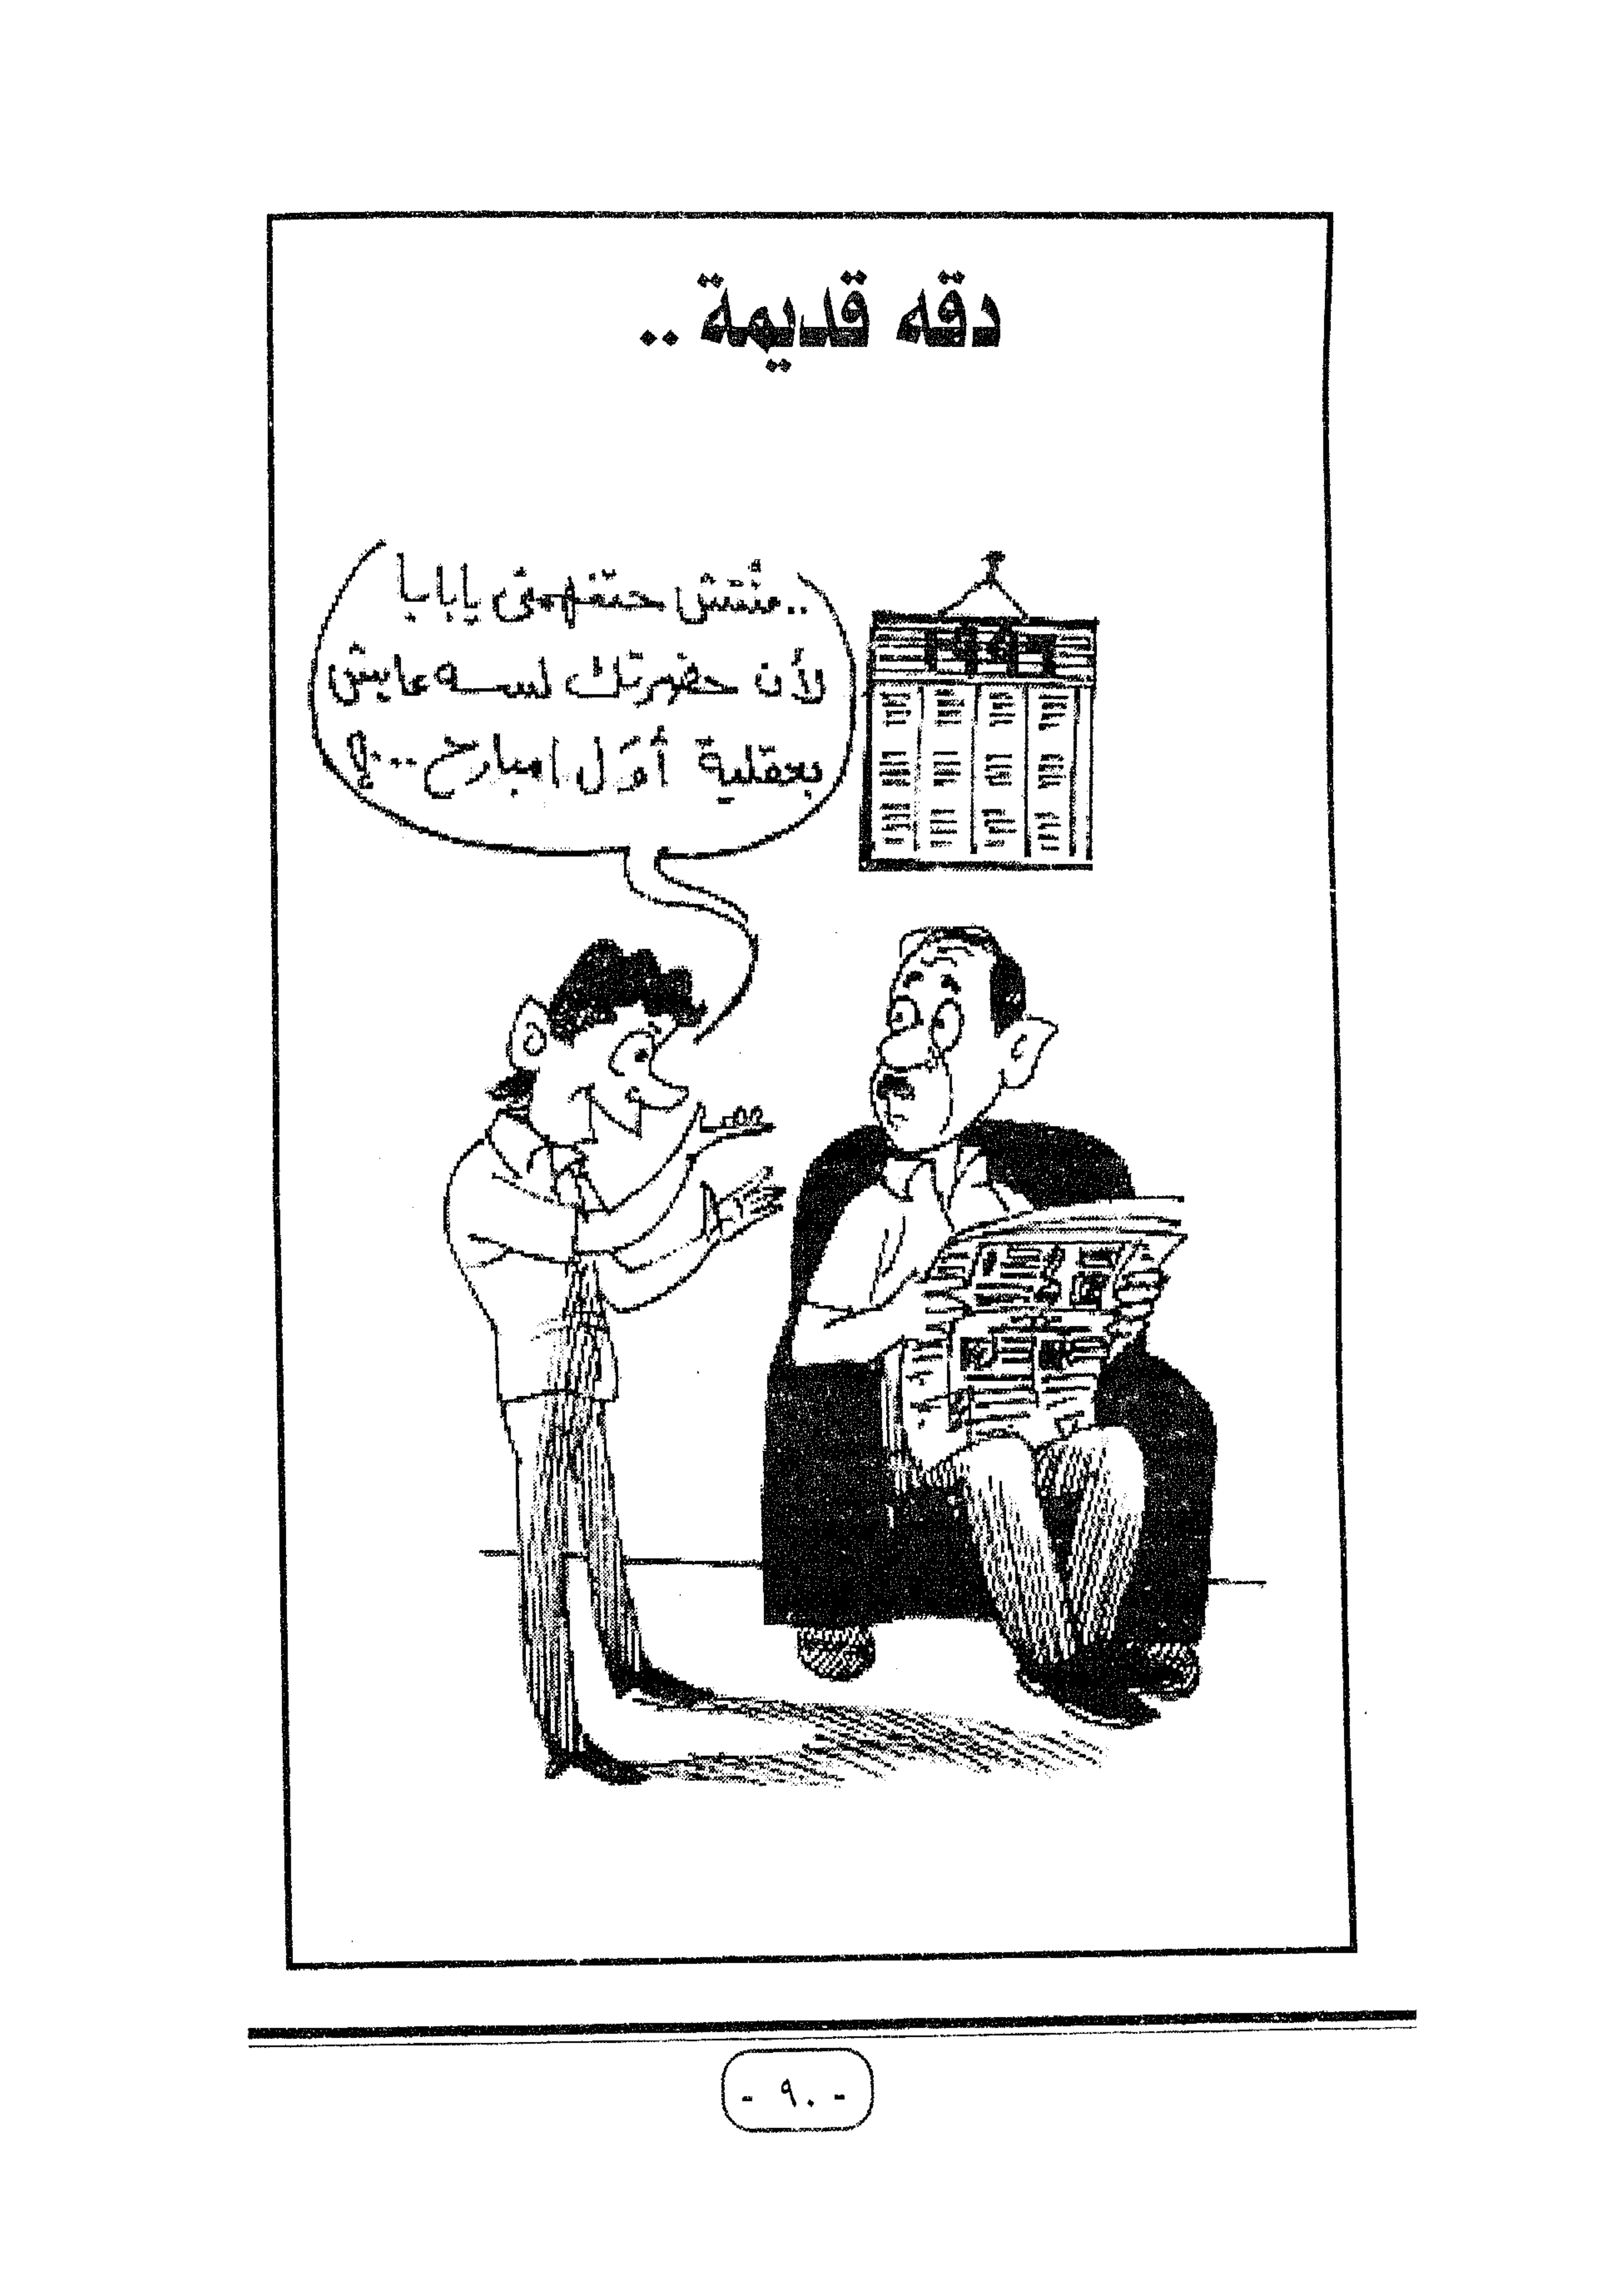 دقه قديمة ..
..منتش حتفهمنى يا بابا
لأن حضرتك لسه عايش
بعقلية أوّل امبارح ...؟
- ٩٠ -